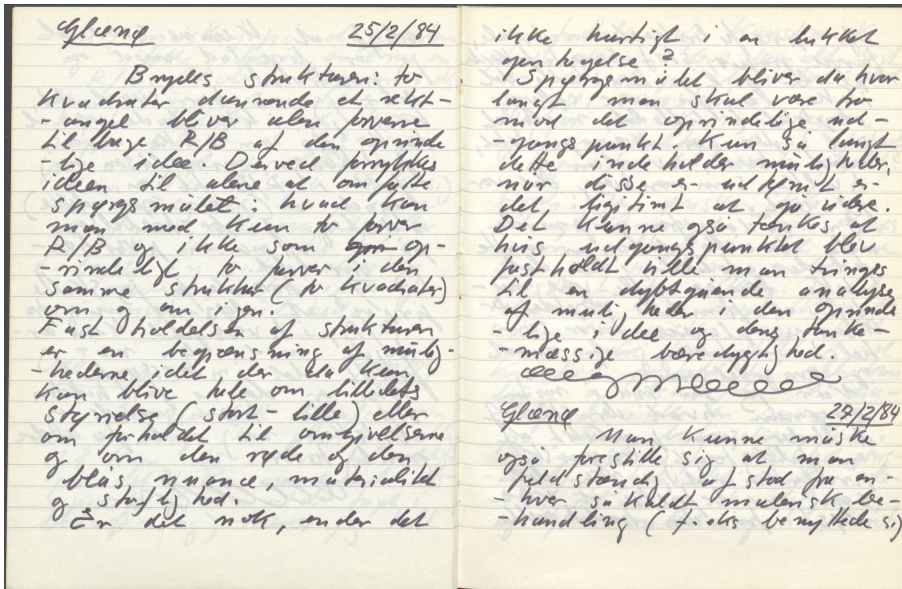 Glænø 25/2/84
Brydes strukturen: to
kvadrater dannende et rekt-
-angel bliver alene farverne
tilbage R/B af den oprinde-
-lige idee. Derved forryktes
ideen til alene at omfatte
spørgsmålet: hvad kan
man med kun to farver
R/B og ikke som op-
-rindeligt to farver i den
samme struktur (to kvadrater)
om og om igen.
Fastholdelsen af strukturen
er en begrænsning af mulig-
-hederne idet der da kun
kan blive tale om billedets
størrelse (stort-lille) eller
om forholdet til omgivelserne
og om den røde og den
blås, nuance, materialitet
og stoflighed.
Er det nok, ender det
ikke hurtigt i en lukket
gentagelse?
Spørgsmålet bliver da hvor
langt man skal være tro
mod det oprindelige ud-
-gangspunkt. Kun så langt
dette indeholder muligheder,
når disse er udtømt er
det legitimt at gå videre.
Det kunne også tænkes at
hvis udgangspunktet blev
fastholdt ville man tvinges
til en dybtgående analyse
af muligheder i den oprinde
-lige idee og dens tanke-
-mæssige bæredygtighed.
Glænø 27/2/84
Man kunne måske
også forestille sig at man
fuldstændig afstod fra en-
-hver såkaldt malerisk be-
-handling (f.eks benyttede si)